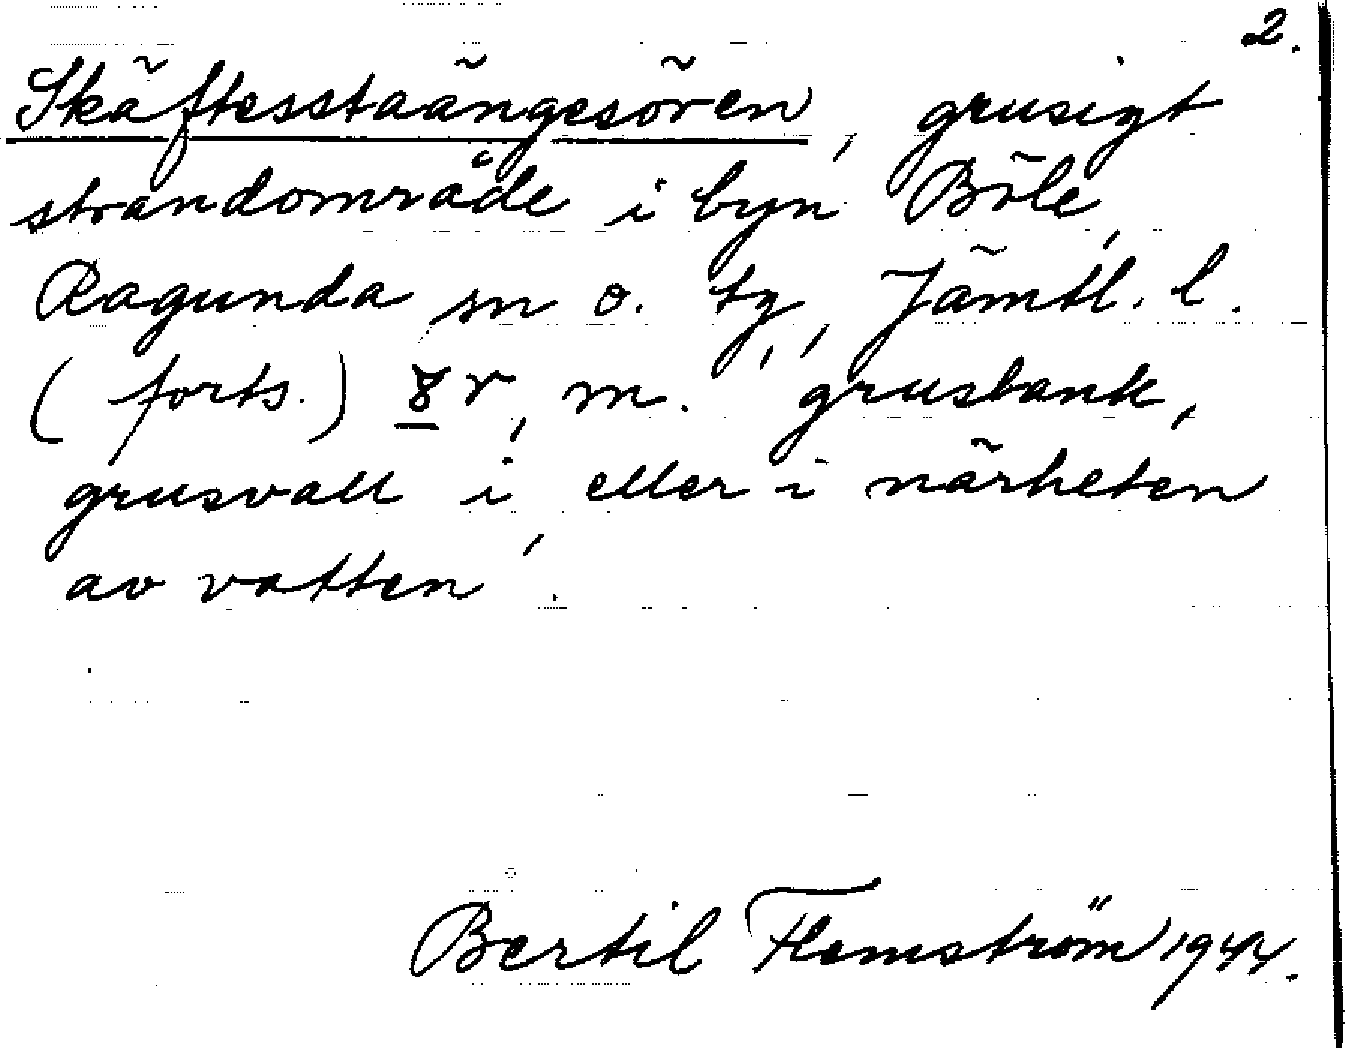 2.
Skäftesstaängesören, grusigt
strandområde i byn Böle,
Ragunda sn o. tg, Jämtl. l.
(forts.) r, m. 'grusbank,
grusvall i, eller i närheten
av vatten'.
Bertil Flemström 1944.